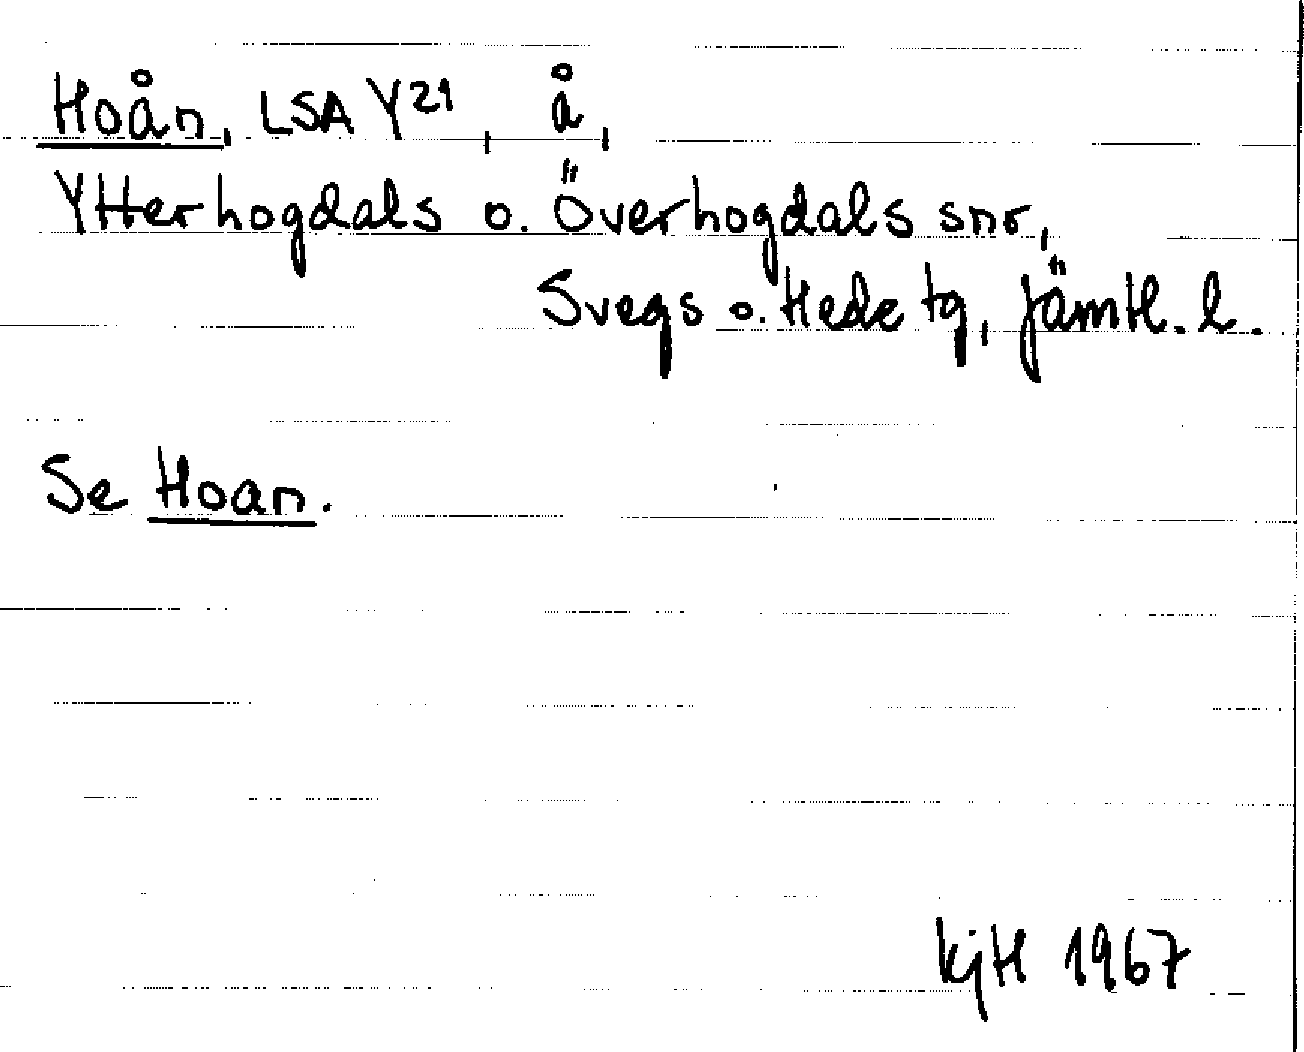 Hoån, LSA Y21, å,
Ytterhogdals o. Överhogdals snr,
Svegs o. Hede tg, Jämtl. l.
Se Hoan.
KjH 1967